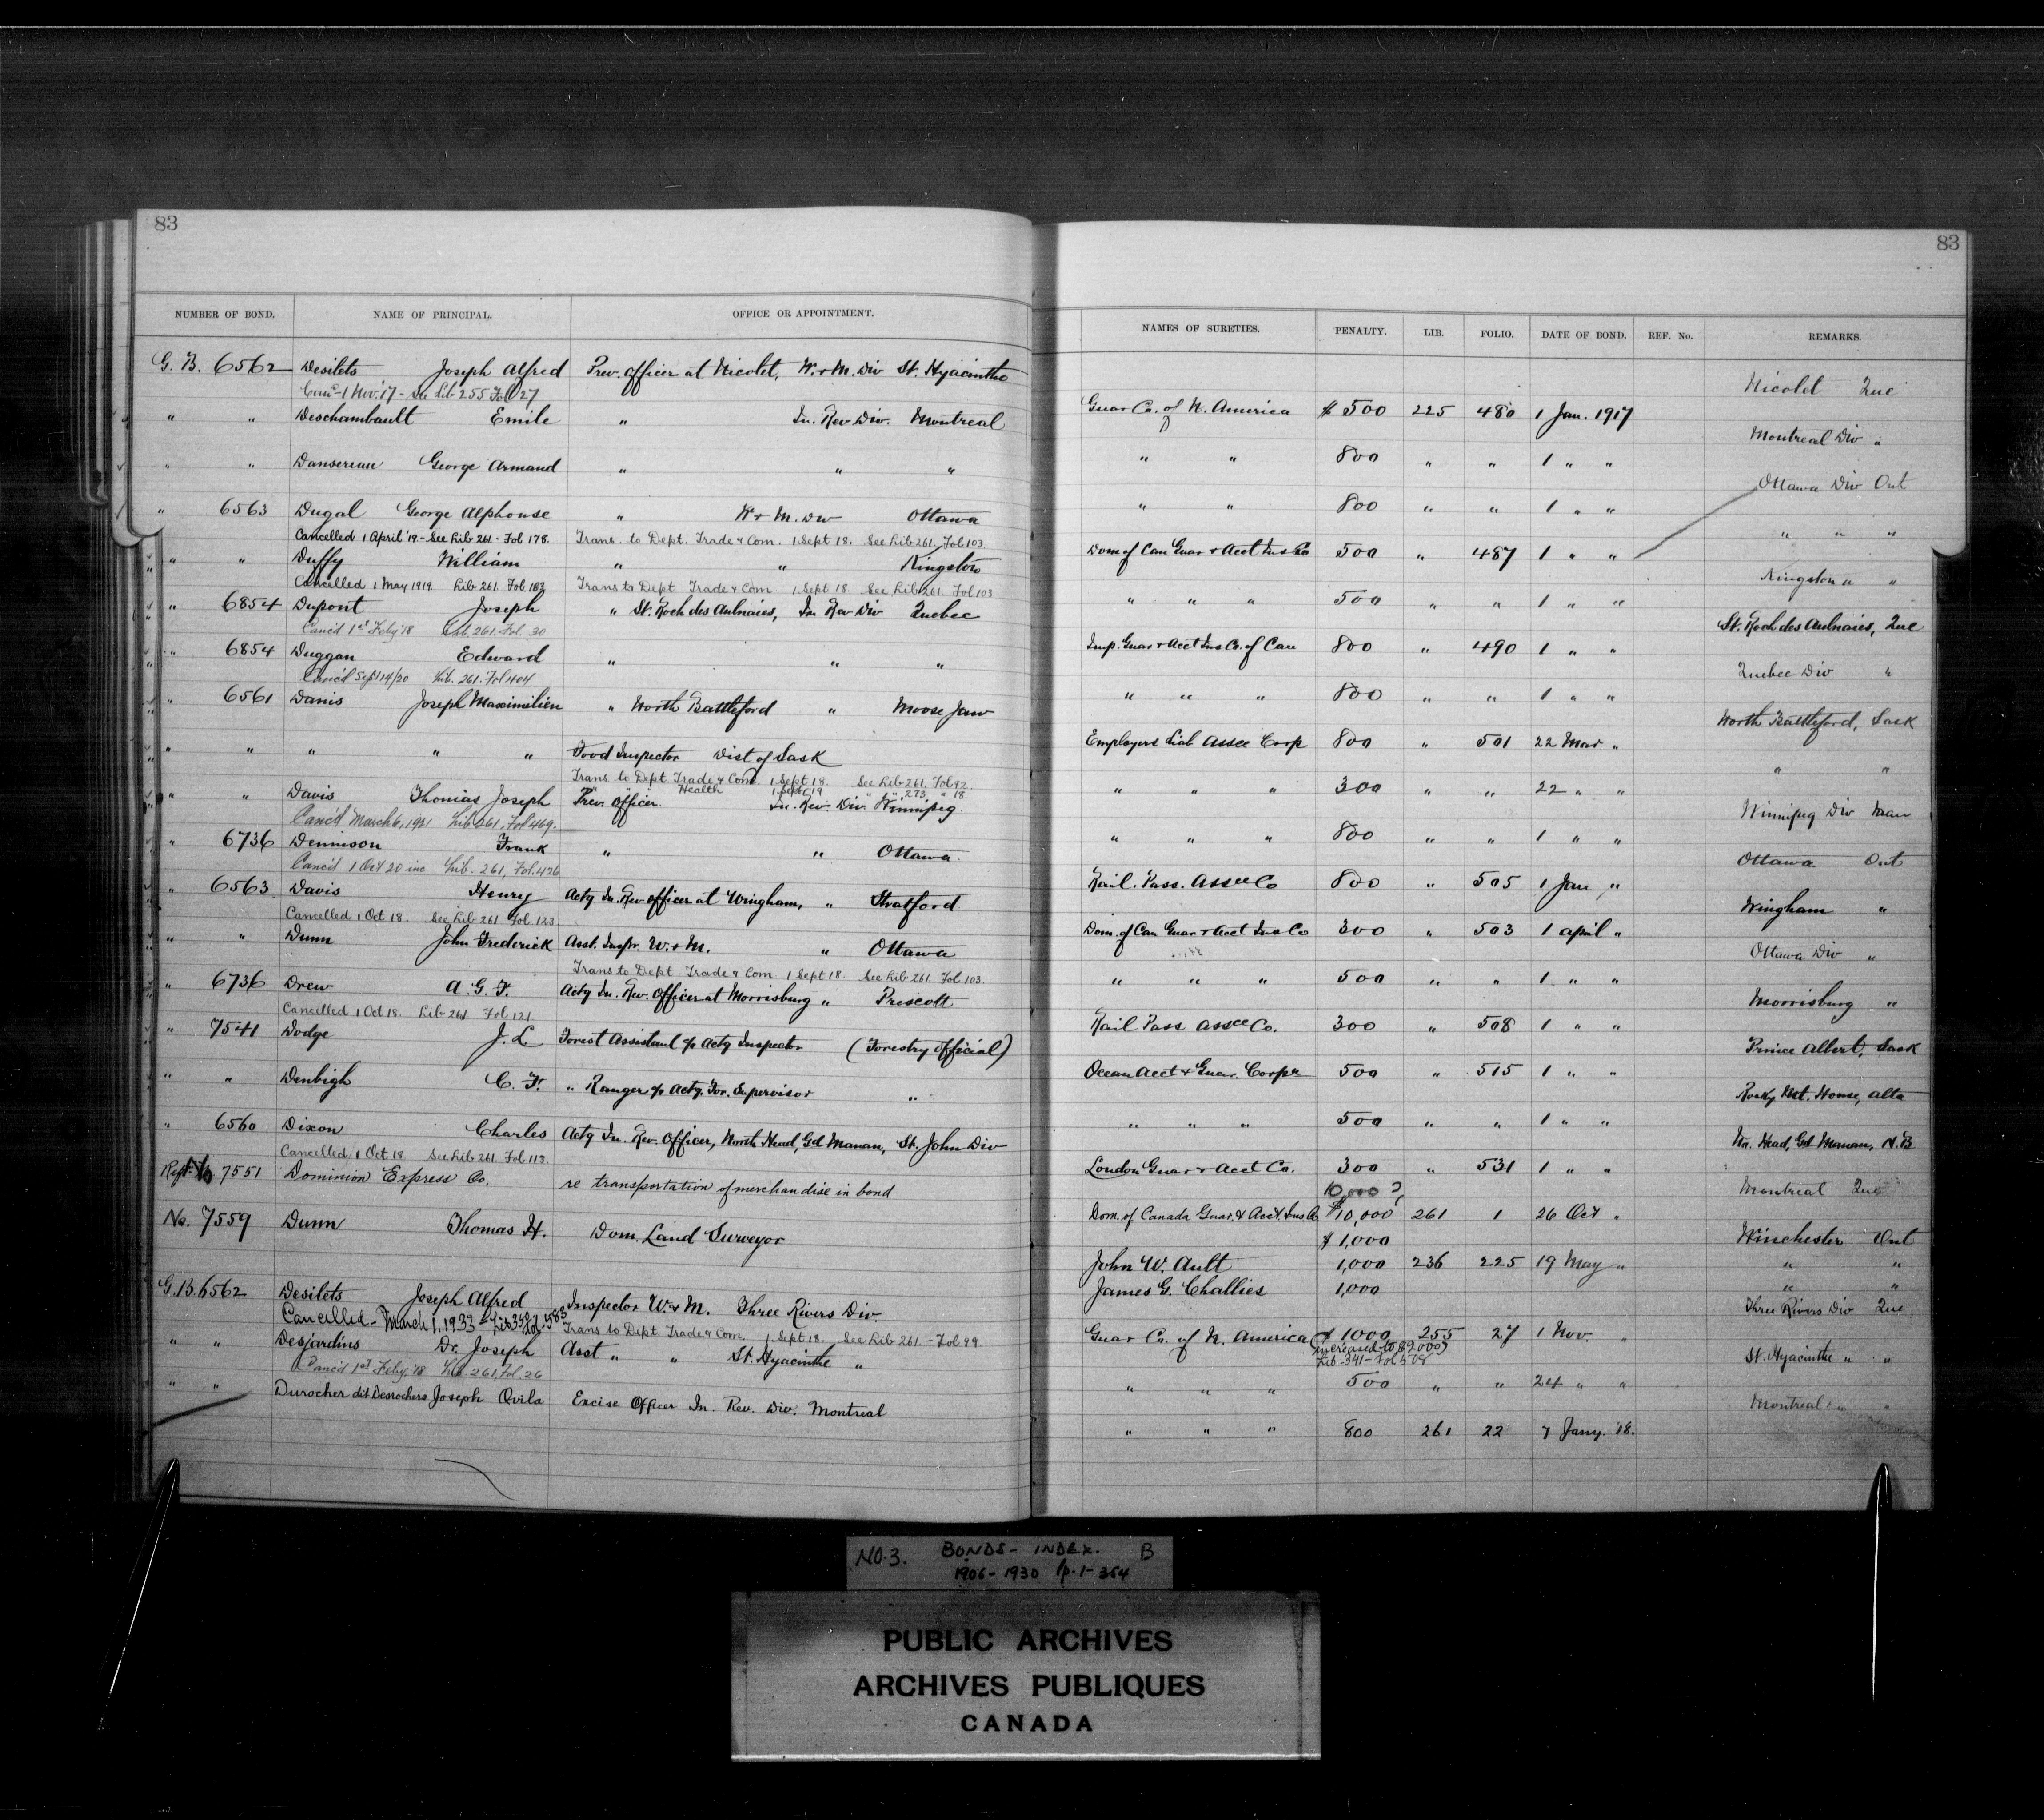 83
NUMBER OF BOND. NAME OF PRINCIPAL. OFFICE OR APPOINTMENT.
G. B. 6562 Desilets Joseph Alfred Prev. Officer at Nicolet, W. & M. Div St. Hyacinthe
Canc 1 Nov. '17 - See Lib 255 Fol 27
" " Deschambault Emile " In. Rev Div. Montreal
" " Dansereau George Armand " " "
" 6563 Dugal George Alphonse " W & M. Div Ottawa
Cancelled 1 April '19 - See Lib 261 - Fol 178. Trans. to Dept. Trade & Com. 1 Sept 18. See Lib 261. Fol 103.
" " Duffy William " " Kingston
Cancelled 1 May 1919. Lib 261. Fol. 183 Trans to Dept Trade & Com 1 Sept 18. See Lib 261 Fol 103
" 6854 Dupont Joseph " St. Roch des Aulnaies, In Rev Div Quebec
Canc'd 1st Feby '18 Lib. 261. Fol. 30
" 6854 Duggan Edward " " "
Canc'd Sept 14/20 Lib. 261. Fol 404
" 6561 Danis Joseph Maximilien " North Battleford " Moose Jaw
" " " " " Food Inspector Dist of Sask
Trans to Dept. Trade & Com. 1 Sept 18. See Lib 261. Fol 92.
" " Health 1 Sept 19 " " 273 " 18
" " Davis Thomas Joseph Prev. Officer. In. Rev. Div. Winnipeg.
Canc'd March 6, 1921 Lib 261, Fol 469.
" 6736 Dennison Frank " " Ottawa.
Canc'd 1 Oct 20 inc Lib. 261, Fol. 426
" 6563 Davis Henry Actg In. Rev. officer at Wingham, " Stratford
Cancelled 1 Oct 18. See Lib 261 Fol. 123
" " Dunn John Frederick Asst. Inspr. W. & M. " Ottawa
Trans to Dept. Trade & Com 1 Sept 18 See Lib 261. Fol 103.
" 6736 Drew A. G. F. Actg In. Rev. Officer at Morrisburg " Prescott
Cancelled 1 Oct 18. Lib 261 Fol 121.
" 7541 Dodge J. L Forest Assistant &/or Actg Inspector (Forestry Official)
" " Denbigh C. F. " Ranger &/or Actg. For. Supervisor "
" 6560 Dixon Charles Actg In. Rev. Officer, North Head, Gd Manan, St. John Div
Cancelled 1 Oct 18 See Lib 261. Fol. 113.
Regr. No 7551 Dominion Express Co. re transportation of merchandise in bond
No. 7559 Dunn Thomas H. Dom. Land Surveyor
G. B. 6562 Desilets Joseph Alfred Inspector W. & M. Three Rivers Div.
Cancelled - March 1. 1933 - Trans to Dept. Trade & Com. 1 Sept 18. See Lib 261. - Fol 99
" " Desjardins Dr. Joseph Asst " " St. Hyacinthe "
Canc'd 1st Feby '18 Lib. 261, Fol. 26
" " Durocher dit Desrochers Joseph Ovila Excise Officer In. Rev. Div. Montreal
83
NAMES OF SURETIES. PENALTY. LIB. FOLIO. DATE OF BOND. REF. No. REMARKS.
Nicolet Que
Guar Co. of N. America $ 500 225 480 1 Jan. 1917
Montreal Div "
" " 800 " " 1 " "
Ottawa Div Ont
" " 800 " " 1 " "
" " "
Dom of Can Guar & Acct Ins Co 500 " 487 1 " "
Kingston " "
" " " 500 " " 1 " "
St. Roch des Aulnaies, Que
Imp. Guar & Acct Ins Co. of Can 800 " 490 1 " "
Quebec Div "
" " " 800 " " 1 " "
North Battleford, Sask
Employers Liab Assce Corp 800 " 501 22 Mar "
" "
" " " 300 " " 22 " "
Winnipeg Div Man
" " " 800 " " 1 " "
Ottawa Ont
Rail. Pass. Assce Co 800 " 505 1 Jan "
Wingham "
Dom. of Can Guar & Acct Ins Co 300 " 503 1 April "
Ottawa Div "
" " " 500 " " 1 " "
Morrisburg "
Rail Pass Assce Co. 300 " 508 1 " "
Prince Albert, Sask
Ocean Acct & Guar. Corpn 500 " 515 1 " "
Rocky Mt. House, Alta
" " " 500 " " 1 " "
No. Head, Gd Manan, N. B
London Guar & Acct Co. 300 " 531 1 " "
10,000 ?
Montreal Que
Dom. of Canada Guar. & Acct. Ins Co $10,000 261 1 26 Oct "
$ 1,000
Winchester Ont
John W. Ault 1,000 236 225 19 May "
" "
James G. Challies 1,000
" "
Three Rivers Div Que
Guar Co. of N. America $ 1000 255 27 1 Nov. "
(increased to $2000)
Lib. 341 - Fol 508
St. Hyacinthe " "
" " " 500 " " 24 " "
Montreal " "
" " " 800 261 22 7 Jany. '18.
NO. 3. BONDS - INDEX. B
1906 - 1930 p. 1 - 354
PUBLIC ARCHIVES
ARCHIVES PUBLIQUES
CANADA